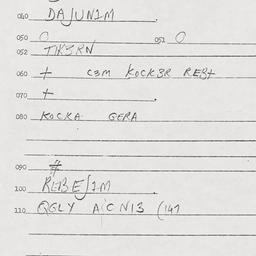 040 DAJUN1M
050 O 051 O
052 TIKJRN
060 + C3M KOCK3R RE8+
070 +
080 KOCKA GERA
090 #
100 REBEJ1M
110 QGLY AICNI3 (147